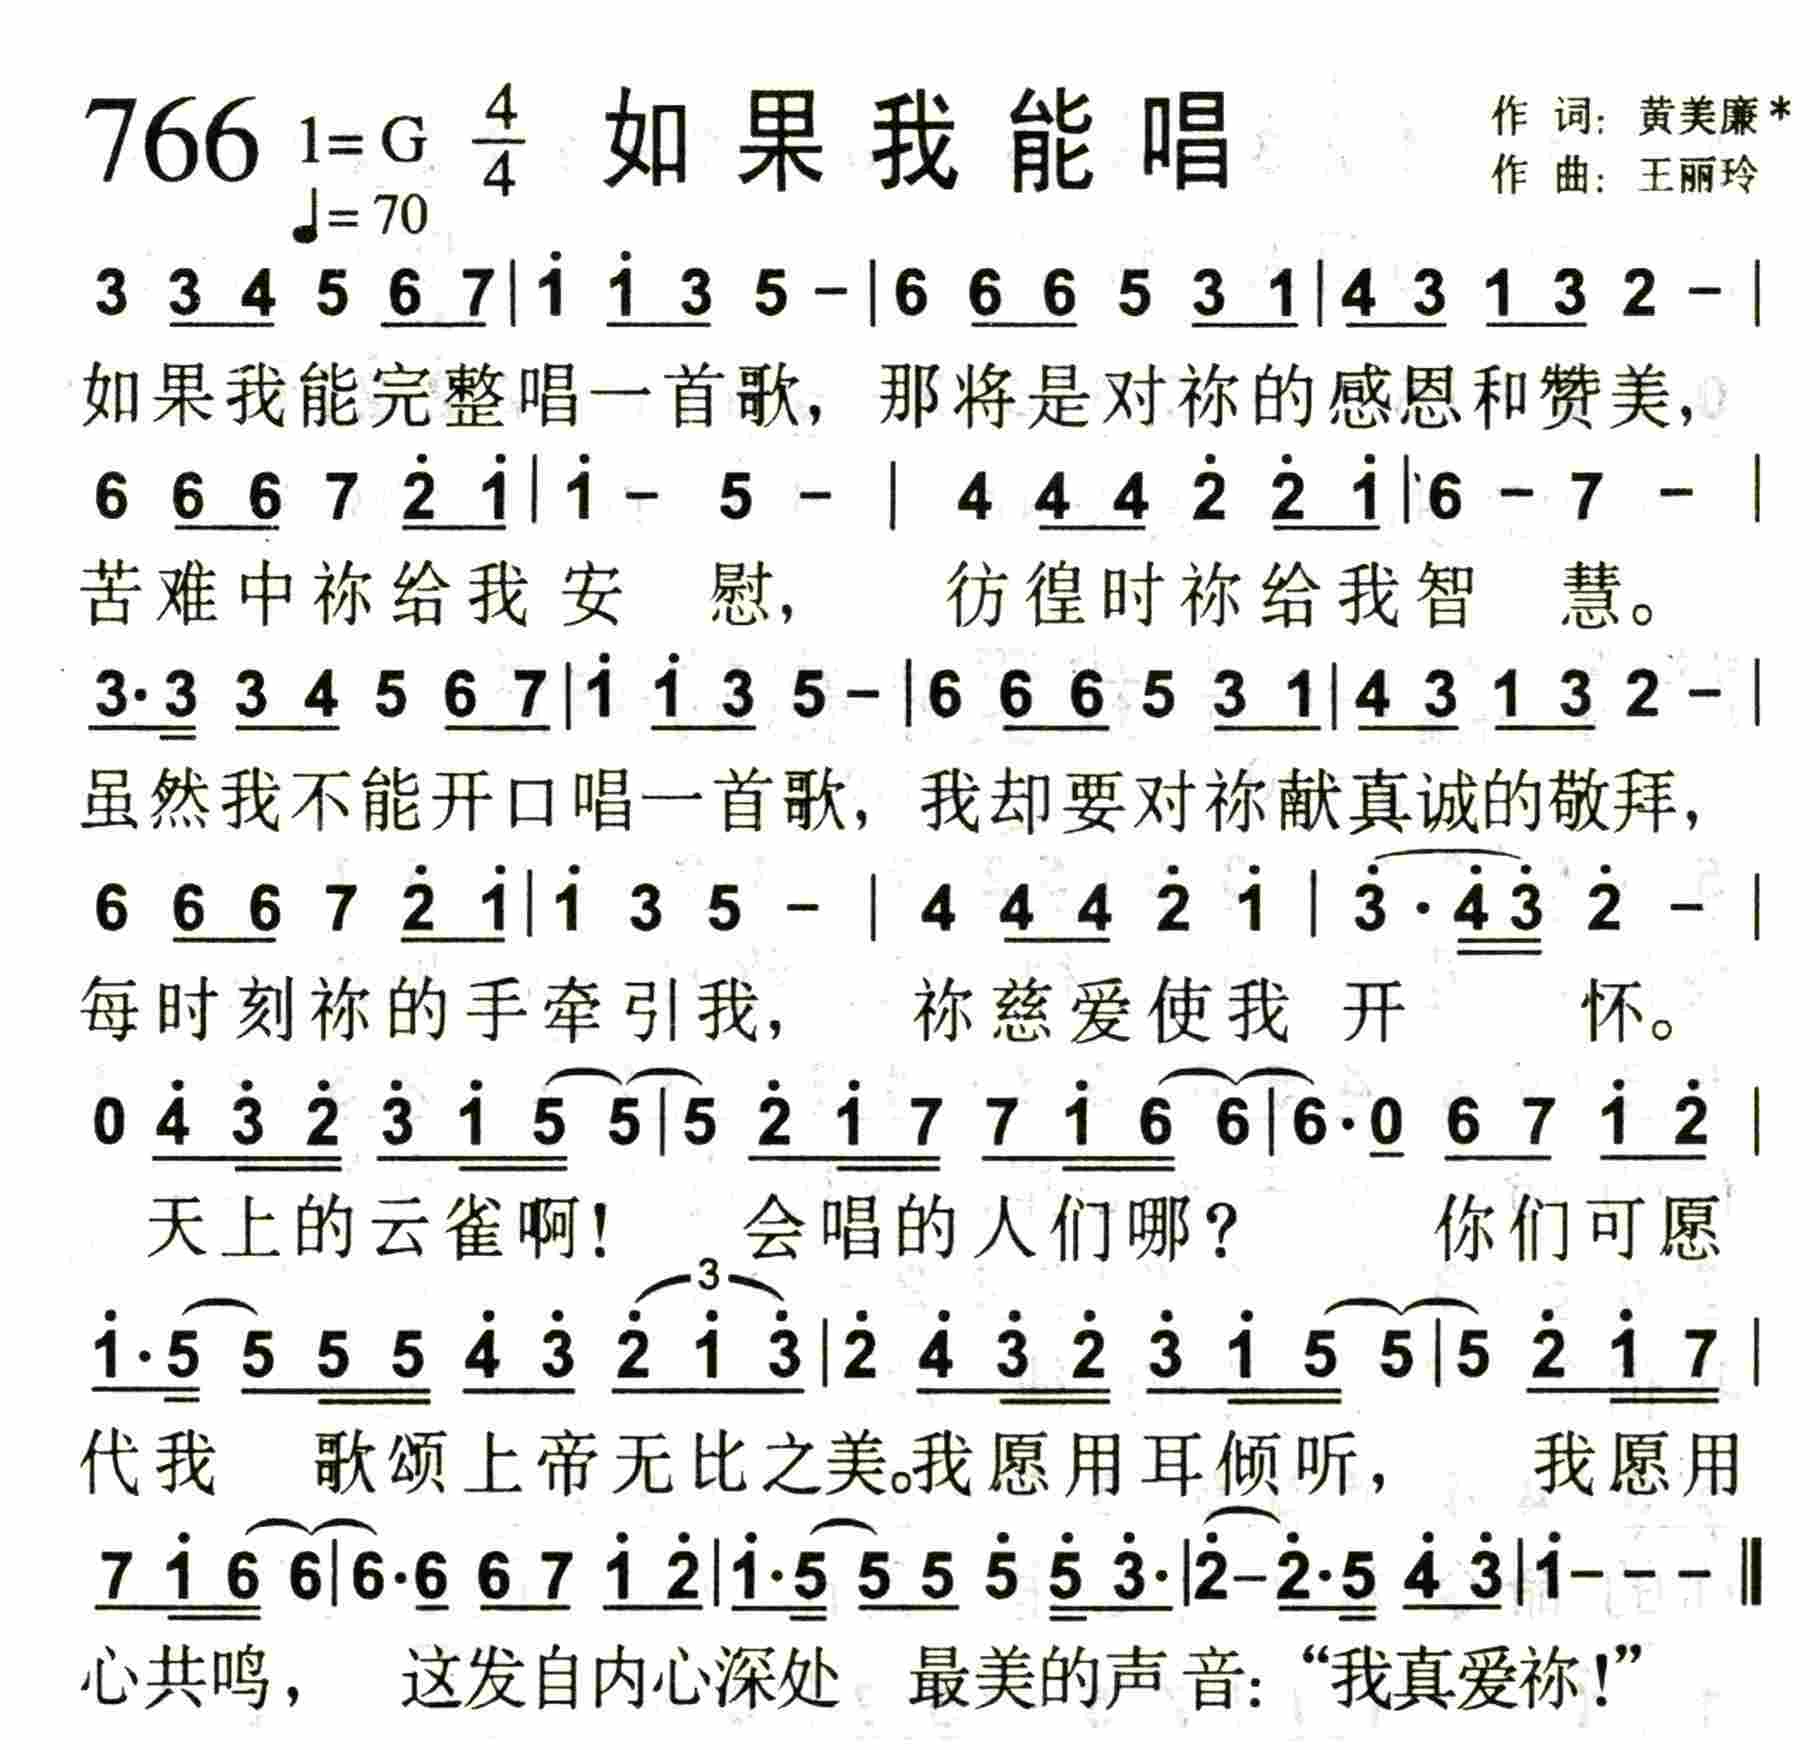 766 1=G 4/4 如果我能唱 作 词：黄美廉*
♩=70 作 曲：王丽玲
3 3 4 5 6 7 | 1̇ 1̇ 3 5 – | 6 6 6 5 3 1 | 4 3 1 3 2 – |
如果我能完整唱一首歌，那将是对祢的感恩和赞美，
6 6 6 7 2̇ 1̇ | 1̇ – 5 – | 4 4 4 2̇ 2̇ 1̇ | 6 – 7 – |
苦难中祢给我安 慰， 彷徨时祢给我智 慧。
3·3 3 4 5 6 7 | 1̇ 1̇ 3 5 – | 6 6 6 5 3 1 | 4 3 1 3 2 – |
虽然我不能开口唱一首歌，我却要对祢献真诚的敬拜，
6 6 6 7 2̇ 1̇ | 1̇ 3 5 – | 4 4 4 2̇ 1̇ | 3̇ · 4̇ 3̇ 2̇ – |
每时刻祢的手牵引我， 祢慈爱使我 开 怀。
0 4̇ 3̇ 2̇ 3̇ 1̇ 5 5 | 5 2̇ 1̇ 7 7 1̇ 6 6 | 6·0 6 7 1̇ 2̇ |
天上的云雀啊! 会唱的人们哪? 你们可愿
3
1̇·5 5 5 5 4̇ 3̇ 2̇ 1̇ 3̇ | 2̇ 4̇ 3̇ 2̇ 3̇ 1̇ 5 5 | 5 2̇ 1̇ 7 |
代我 歌颂上帝无比之美。我愿用耳倾听， 我愿用
7 1̇ 6 6 | 6·6 6 7 1̇ 2̇ | 1̇·5 5 5 5 5 3̇· | 2̇ – 2̇·5 4̇ 3̇ | 1̇ – – – ‖
心共鸣， 这发自内心深处 最美的声音：“我真爱祢!”